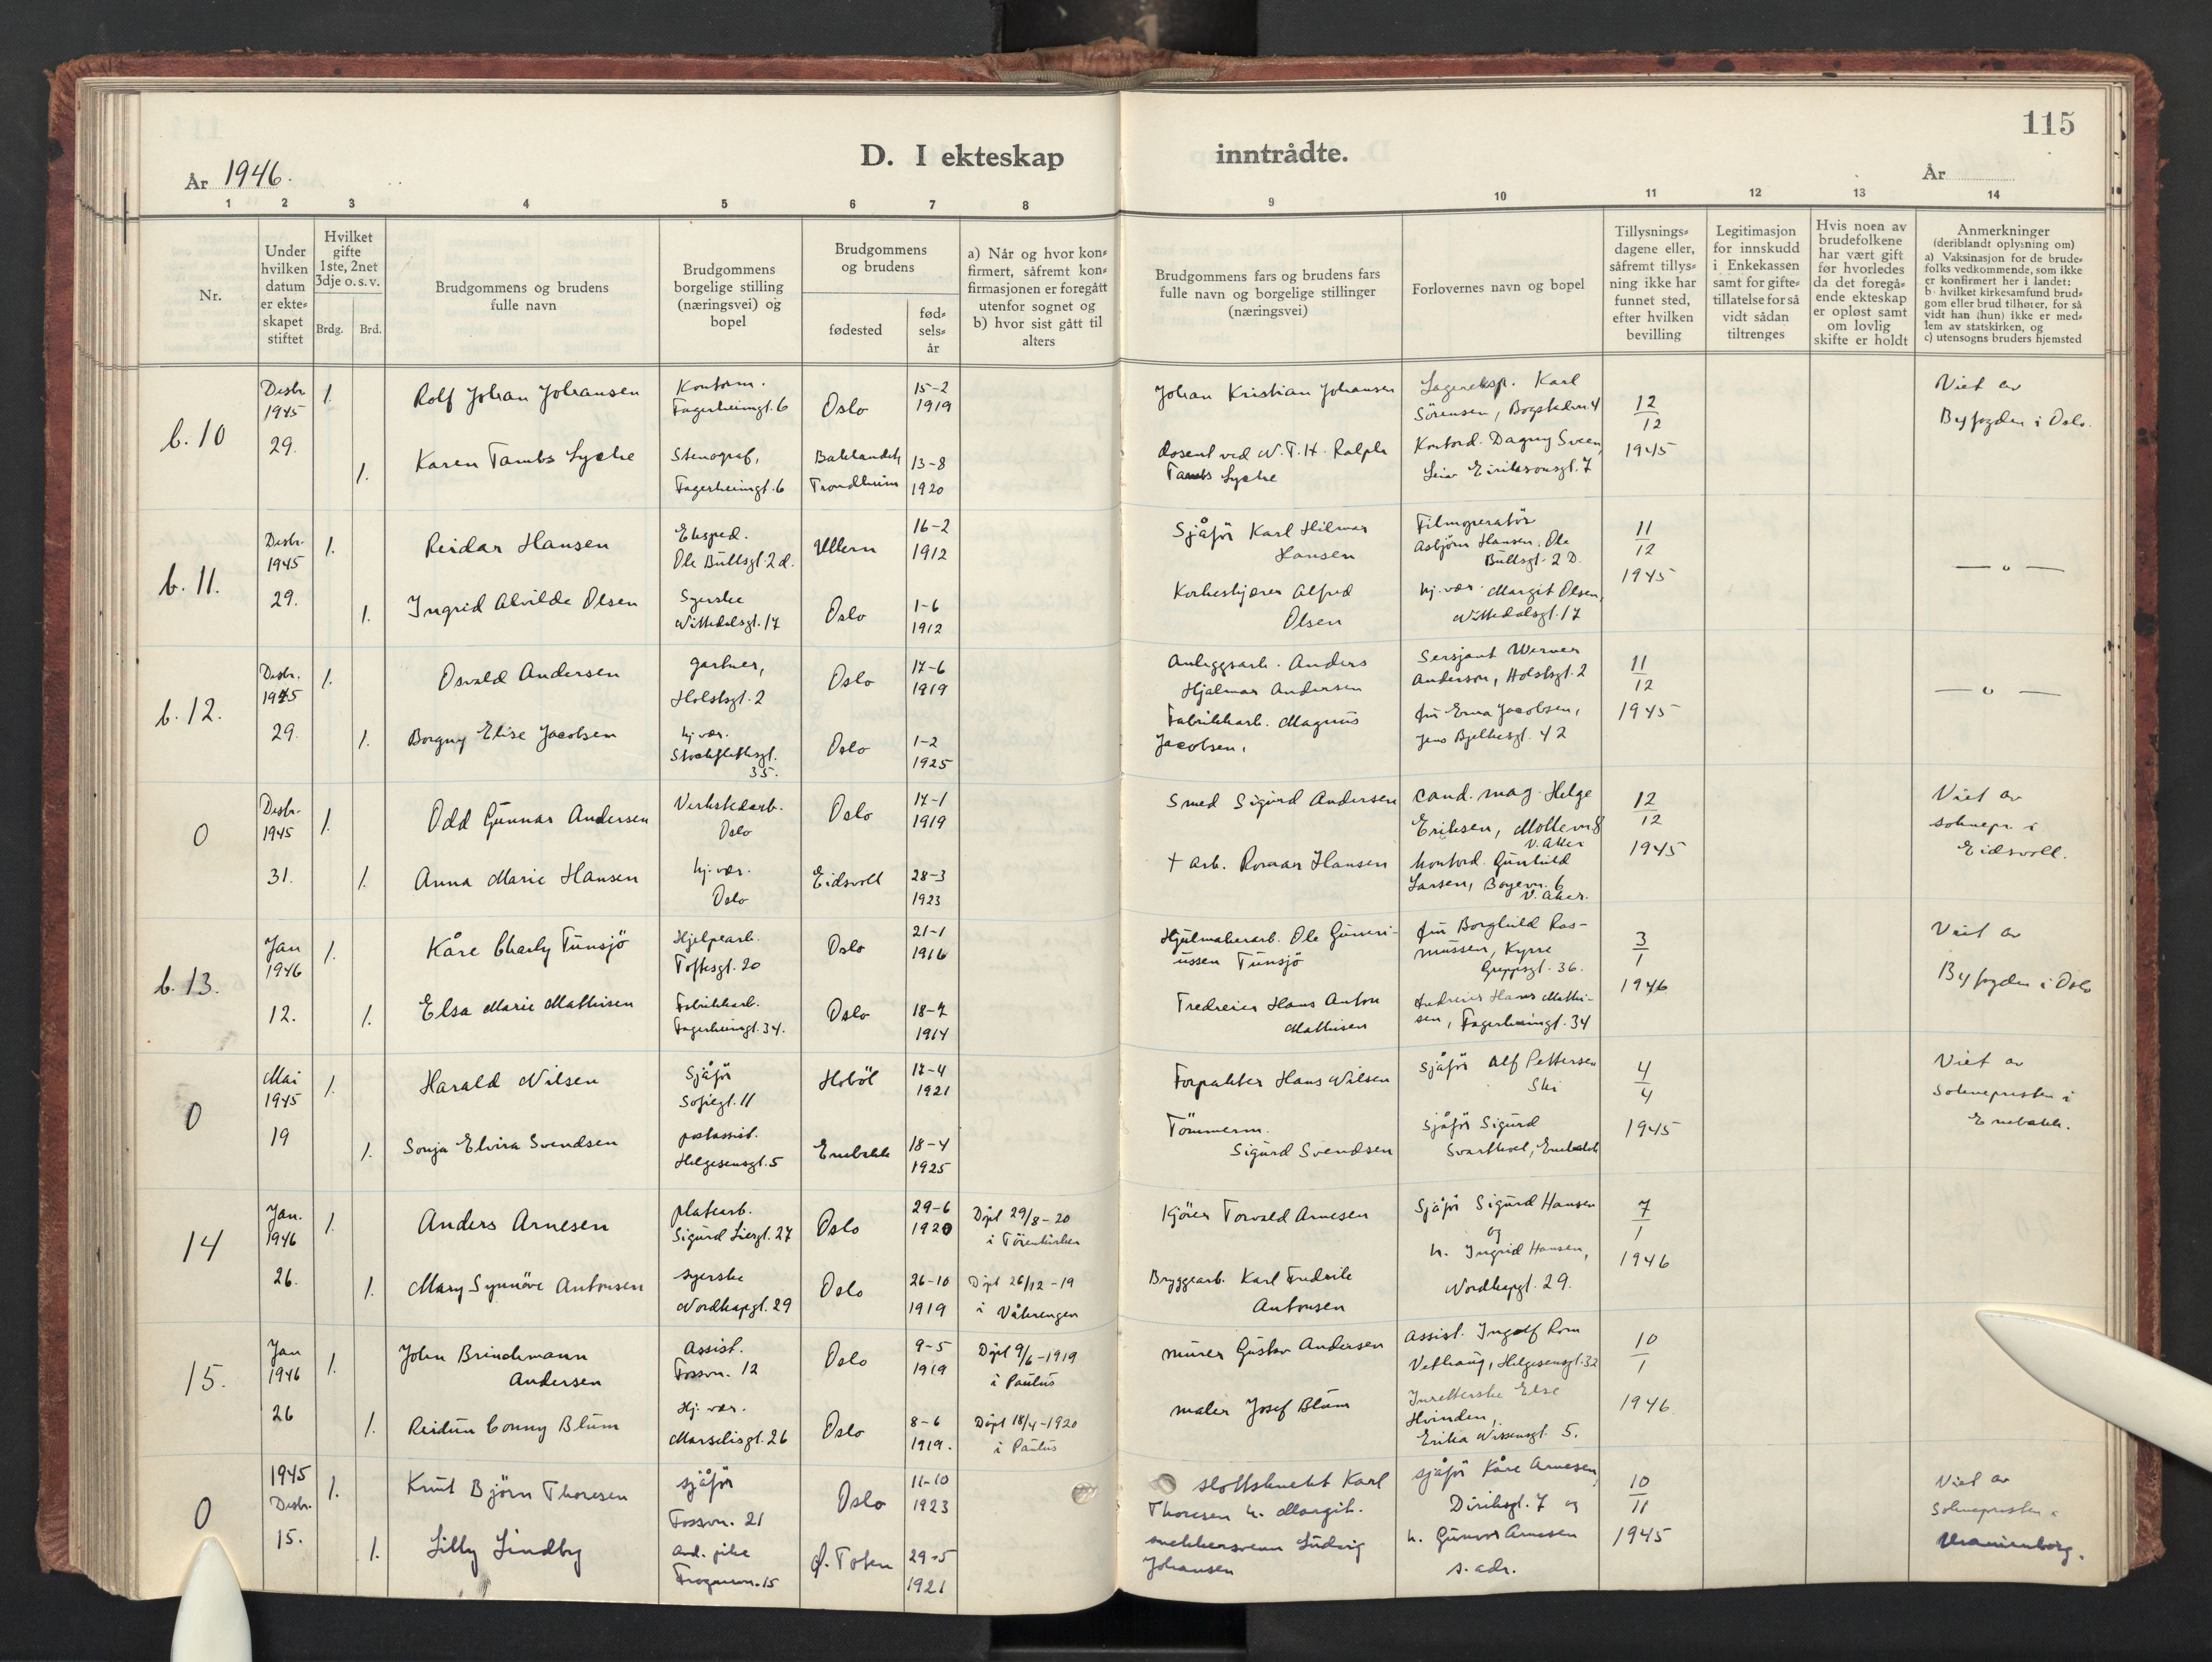 115
D. I ekteskap inntrådte.
År 1946.
År
1 2 3 4 5 6 7 8 9 10 11 12 13 14
Nr.
Under hvilken datum er ekte= skapet stiftet
Hvilket gifte 1ste, 2net 3dje o. s. v.
Brdg. Brd.
Brudgommens og brudens fulle navn
Brudgommens borgelige stilling (næringsvei) og bopel
Brudgommens og brudens
fødested
fød= sels= år
a) Når og hvor kon= firmert, såfremt kon= firmasjonen er foregått utenfor sognet og b) hvor sist gått til alters
Brudgommens fars og brudens fars fulle navn og borgelige stillinger (næringsvei)
Forlovernes navn og bopel
Tillysnings= dagene eller, såfremt tillys= ning ikke har funnet sted, efter hvilken bevilling
Legitimasjon for innskudd i Enkekassen samt for gifte= tillatelse for så vidt sådan tiltrenges
Hvis noen av brudefolkene har vært gift før hvorledes da det foregå= ende ekteskap er opløst samt om lovlig skifte er holdt
Anmerkninger (deriblandt oplysning om) a) Vaksinasjon for de brude= folks vedkommende, som ikke er konfirmert her i landet: b) hvilket kirkesamfund brud= gom eller brud tilhører, for så vidt han (hun) ikke er med= lem av statskirken, og c) utensogns bruders hjemsted
b. 10
Desbr. 1945 29.
1.
Rolf Johan Johansen
Kontorm. Fagerheimgt. 6
Oslo
15-2 1919
Johan Kristian Johansen
Lagereksp. Karl Sörensen, Bogstadvn. 4
12/12 1945
Viet av Byfogden i Oslo.
1.
Karen Tambs Lyche
Stenograf, Fagerheimgt. 6
Baklandet Trondheim
13-8 1920
dosent ved N.T.H. Ralph Tambs Lyche
Kontord. Dagny Sveen, Leiv Eirikssonsgt. 7
b. 11.
Desbr. 1945 29.
1.
Reidar Hansen
Eksped. Ole Bullsgt. 2 d.
Ullern
16-2 1912
Sjåför Karl Hilmar Hansen
Filmoperatör Asbjörn Hansen, Ole Bullsgt. 2 D.
11/12 1945
— " —
1.
Ingrid Alvilde Olsen
Syerske Nittedalsgt. 17
Oslo
1-6 1912
Korkeskjærer Alfred Olsen
hj. vær. Margit Olsen, Nittedalsgt. 17
b. 12.
Desbr. 1945 29.
1.
Osvald Andersen
gartner, Holstsgt. 2
Oslo
17-6 1919
Anleggsarb. Anders Hjalmar Andersen
Sersjant Werner Anderson, Holstsgt. 2
11/12 1945
— " —
1.
Borgny Elise Jacobsen
hj. vær. Stockflethsgt. 35.
Oslo
1-2 1925
Fabrikkarb. Magnus Jacobsen.
fru Erna Jacobsen, Jens Bjelkesgt. 42
0
Desbr. 1945 31.
1.
Odd Gunnar Andersen
Verkstedarb. Oslo
Oslo
17-1 1919
Smed Sigurd Andersen
cand. mag. Helge Eriksen, Mollevn 8 V. Aker
12/12 1945
Viet av soknepr. i Eidsvoll.
1.
Anna Marie Hansen
hj. vær. Oslo
Eidsvoll
28-3 1923
† arb. Roar Hansen
kontord. Gunhild Larsen, Bøyevn. 6 V. Aker.
b. 13.
Jan 1946 12.
1.
Kåre Charly Tunsjö
Hjelpearb. Toftesgt. 20
Oslo
21-1 1916
Hjulmakerarb. Ole Guneri- ussen Tunsjö
fru Borghild Ras- mussen, Kyrre Greppsgt. 36.
3/1 1946
Viet av Byfogden i Oslo
1.
Elsa Marie Mathisen
Fabrikkarb. Fagerheimgt. 34.
Oslo
18-7 1914
Fredreier Hans Anton Mathisen
Hans Mathi- sen, Fagerheimgt. 34
0
Mai 1945 19
1.
Harald Nilsen
Sjåför Sofiegt. 11
Hobøl
17-4 1921
Forpakter Hans Nilsen
Sjåför Alf Pettersen Ski
4/4 1945
Viet av Soknepresten i Enebakk.
1.
Sonja Elvira Svendsen
postassist. Helgesensgt. 5
Enebakk
18-4 1925
Tömmerm. Sigurd Svendsen
Sjåför Sigurd Svarthol, Enebakk
14
Jan. 1946 26.
1.
Anders Arnesen
platearb. Sigurd Liesgt. 27
Oslo
29-6 1920
Döpt 29/8-20 i Töienkirken
Kjörer Torvald Arnesen
Sjåför Sigurd Hansen og h. Ingrid Hansen, Nordkapgt. 29.
7/1 1946
1.
Mary Synnöve Antonsen
syerske Nordkapgt. 29
Oslo
26-10 1919
Döpt 26/12-19 i Vålerengen
Bryggearb. Karl Fredrik Antonsen
15.
Jan 1946 26
1.
John Brinchmann Andersen
Assist. Fossvn. 12
Oslo
9-5 1919
Döpt 9/6-1919 i Paulus
murer Gustav Andersen
Assist. Ingolf Rom Vethaug, Helgesensgt. 32
10/1 1946
1.
Reidun Conny Blum
Hj. vær. Marselisgt. 26
Oslo
8-6 1919.
Döpt 18/4-1920 i Paulus
maler Josef Blum
Innretterske Else Hvinden, Erika Nissensgt. 5.
0
1945 Desbr. 15.
1.
Knut Björn Thoresen
sjåför Fossvn. 21
Oslo
11-10 1923
slottsknekt Karl Thoresen h. Margit.
sjåför Kåre Arnesen, Diriksgt. 7 og h. Gunvor Arnesen s. adr.
10/11 1945
Viet av Soknepresten i Uranienborg.
1.
Lilly Lindby
And. pike Frognervn. 15
Ø. Toten
29-5 1921
snekkersvenn Ludvig Johansen